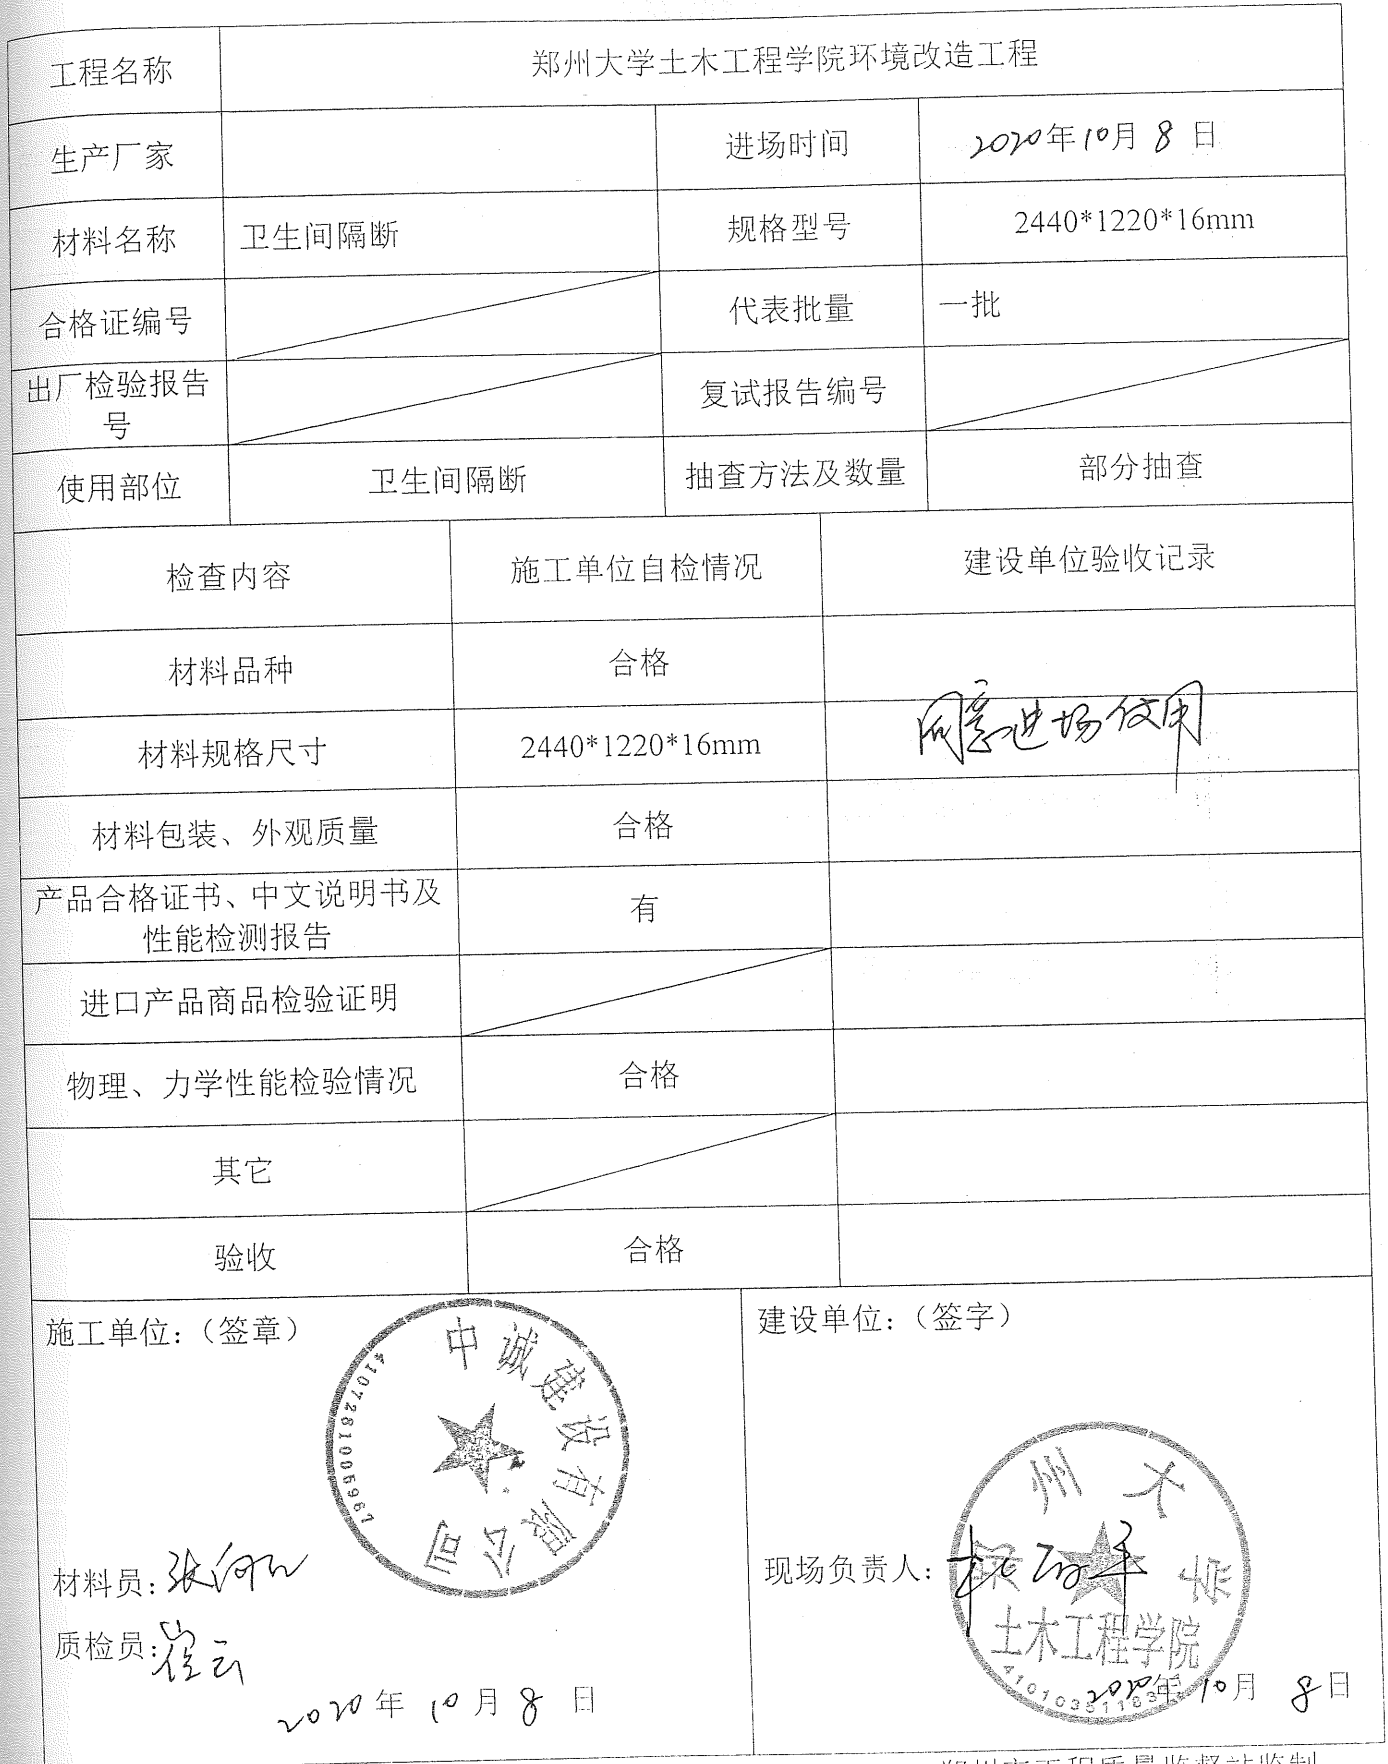 工程名称 郑州大学土木工程学院环境改造工程
生产厂家 进场时间 2020年10月8日
材料名称 卫生间隔断 规格型号 2440*1220*16mm
合格证编号 代表批量 一批
出厂检验报告
号 复试报告编号
使用部位 卫生间隔断 抽查方法及数量 部分抽查
检查内容 施工单位自检情况 建设单位验收记录
材料品种 合格
同意进场使用
材料规格尺寸 2440*1220*16mm
材料包装、外观质量 合格
产品合格证书、中文说明书及
性能检测报告 有
进口产品商品检验证明
物理、力学性能检验情况 合格
其它
验收 合格
施工单位:（签章） 建设单位:（签字）
中诚建设有限公司
郑州大学
材料员: 张 现场负责人:
土木工程学院
质检员: 崔云
2020年10月8日 2020年10月8日
郑州市工程质量监督站监制